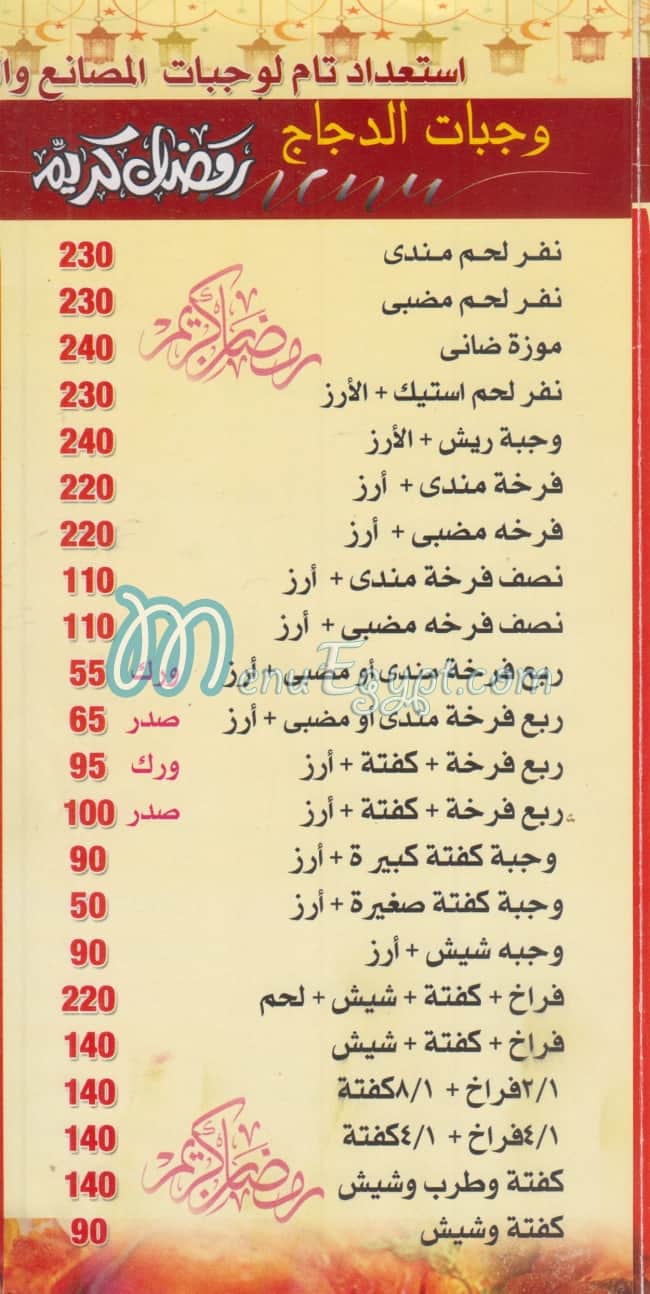 استعداد تام لوجبات المصانع
وجبات الدجاج
رمضان كريم
menu
نفر لحم مندى 230
نفر لحم مضبى 230
رمضان كريم
موزة ضانى 240
نفر لحم استيك + الأرز 230
وجبة ريش + الأرز 240
فرخة مندى + أرز 220
فرخه مضبى + أرز 220
نصف فرخة مندى + أرز 110
نصف فرخه مضبى + أرز 110
MenuEgypt.com
ربع فرخة مندى أو مضبى + أرز ورك 55
ربع فرخة مندى أو مضبى + أرز صدر 65
ربع فرخة + كفتة + أرز ورك 95
ربع فرخة + كفتة + أرز صدر 100
وجبة كفتة كبيرة + أرز 90
وجبة كفتة صغيرة + أرز 50
وجبه شيش + أرز 90
فراخ + كفتة + شيش + لحم 220
فراخ + كفتة + شيش 140
٢/١فراخ + ٨/١كفتة 140
٤/١فراخ + ٤/١كفتة 140
رمضان كريم
كفتة وطرب وشيش 140
كفتة وشيش 90